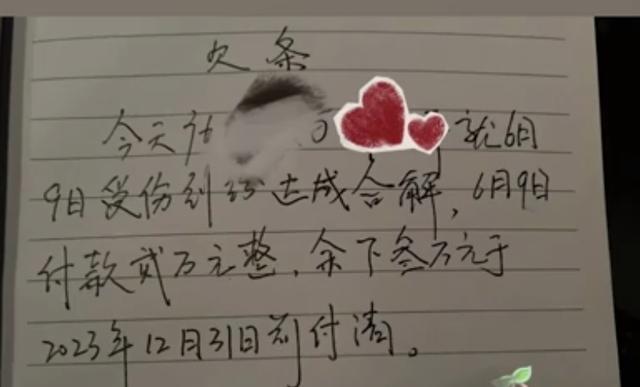 欠条
今天 就6月
9日受伤到 达成合解，6月9日
付款贰万元整，余下叁万元于
2023年12月31日前付清。